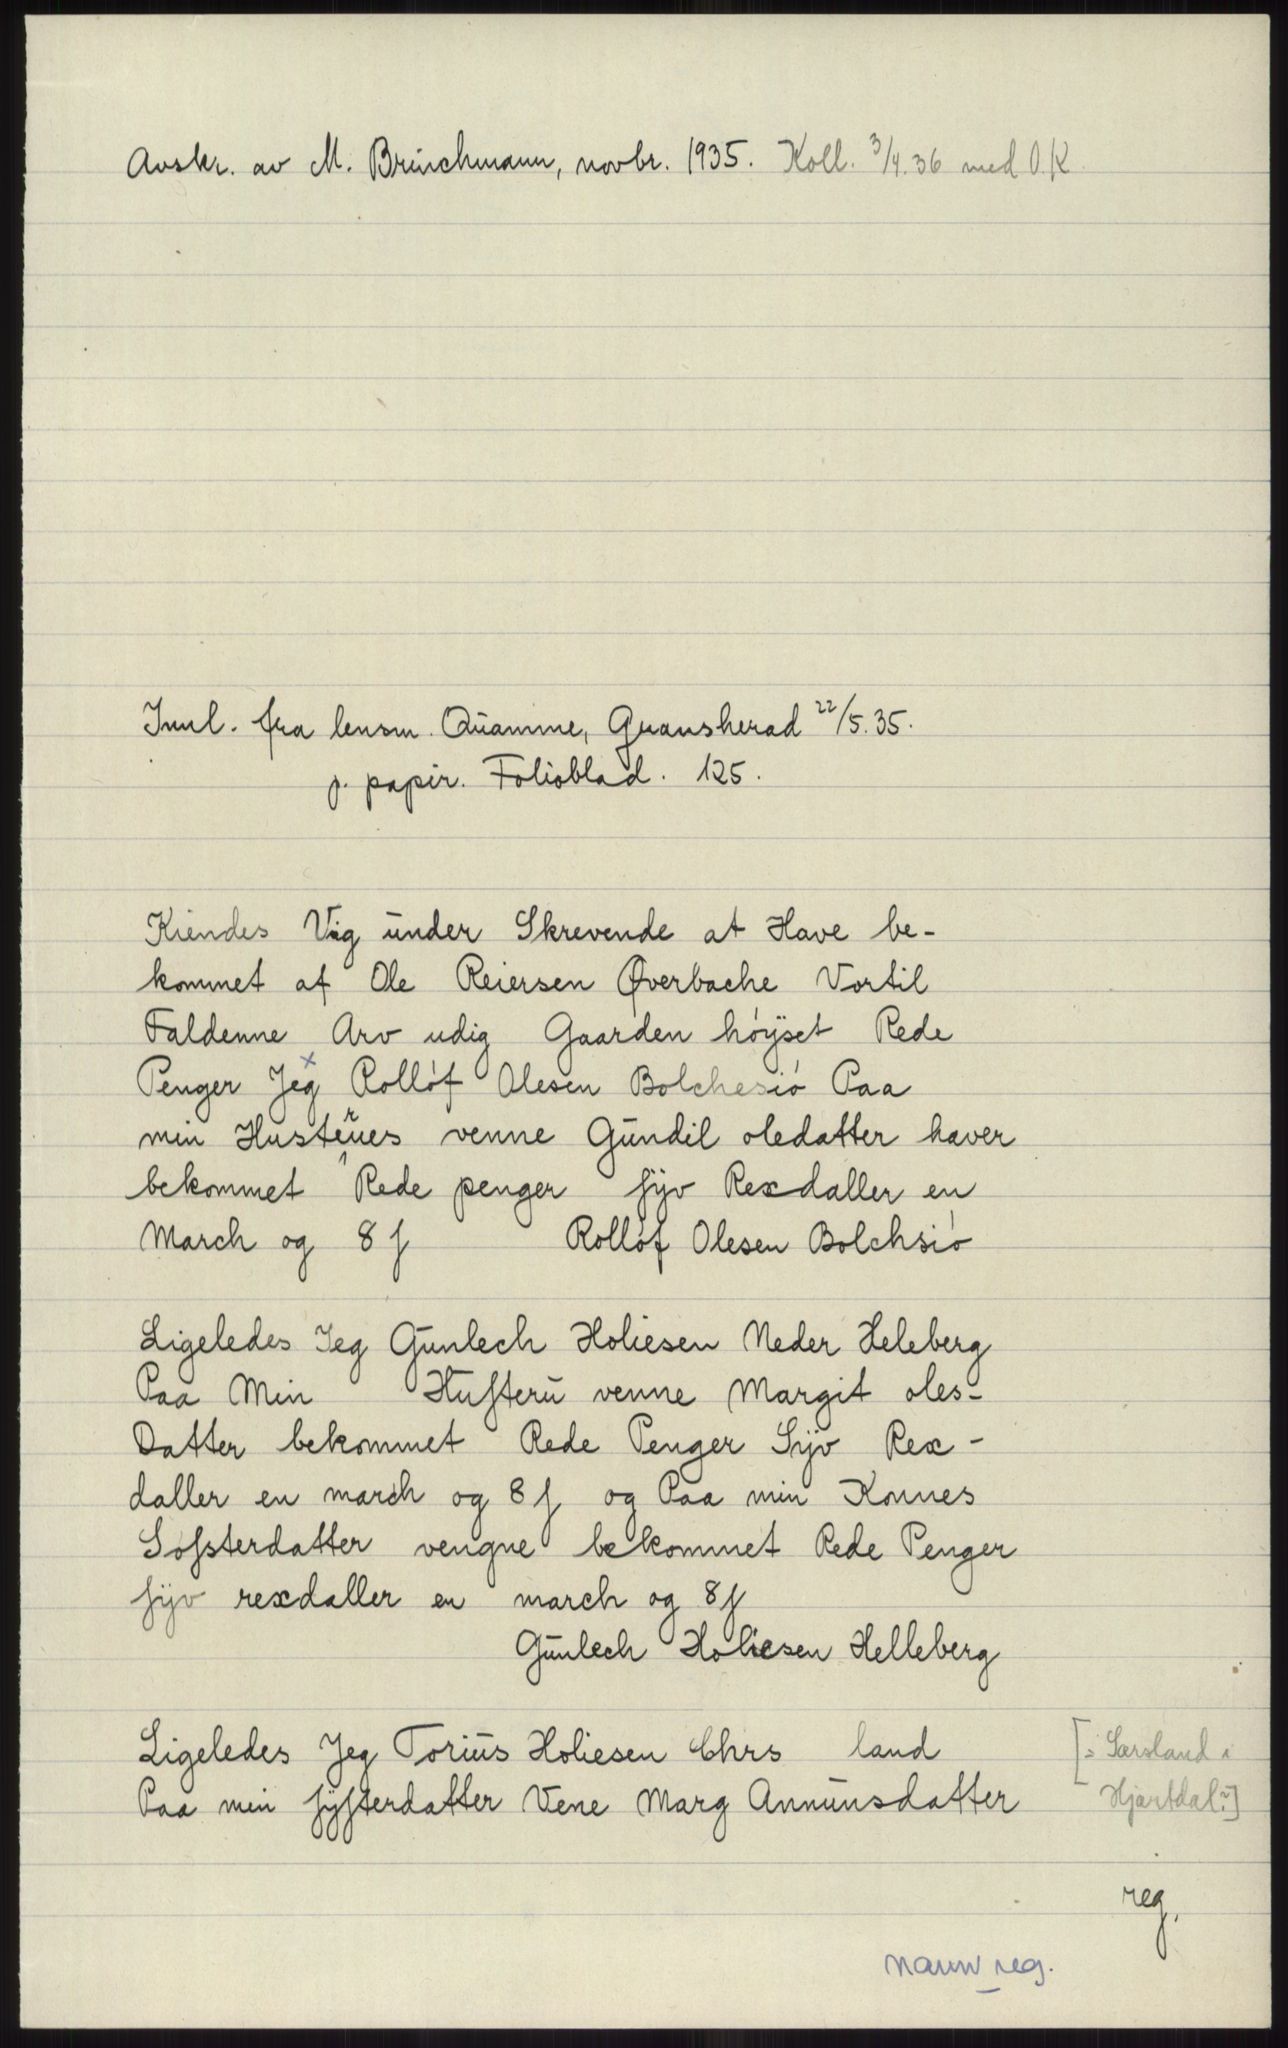 Avskr. av M. Brinchmann, novbr. 1935. Koll. 3/4.36 med O.K
Innl. fra lensm. Quamme, Gransherad 22/5.35.
p. papir. Folioblad. 125.
Kiendes Vig under Skrevende at Have be-
kommet af Ole Reiersen Øverbache Vortil
Faldenne Arv udig Gaarden höÿset Rede
Penger Jeg x Rollóf Olesen Bolchesió Paa
min Husterues venne Gundil oledatter haver
bekommet Rede penger sÿv Rexdaller en
March og 8 ʃ Rollóf Olesen Bolchsió
Ligeledes Jeg Gunlech Holiesen Neder Heleberg
Paa Min Hufteru venne Margit oles-
Datter bekommet Rede Penger Sÿv Rex-
daller en march og 8 ʃ og Paa min Konnes
Sosterdatter vengne bekommet Rede Penger
sÿv rexdaller en march og 8 ʃ
Gunlech Holiesen Helleberg
Ligeledes Jeg Torius Holiesen Chrs land [ɔ: Sarsland i
Paa min sÿsterdatter Vene Marg Annunsdatter Hjartdal?]
reg.
navnreg.